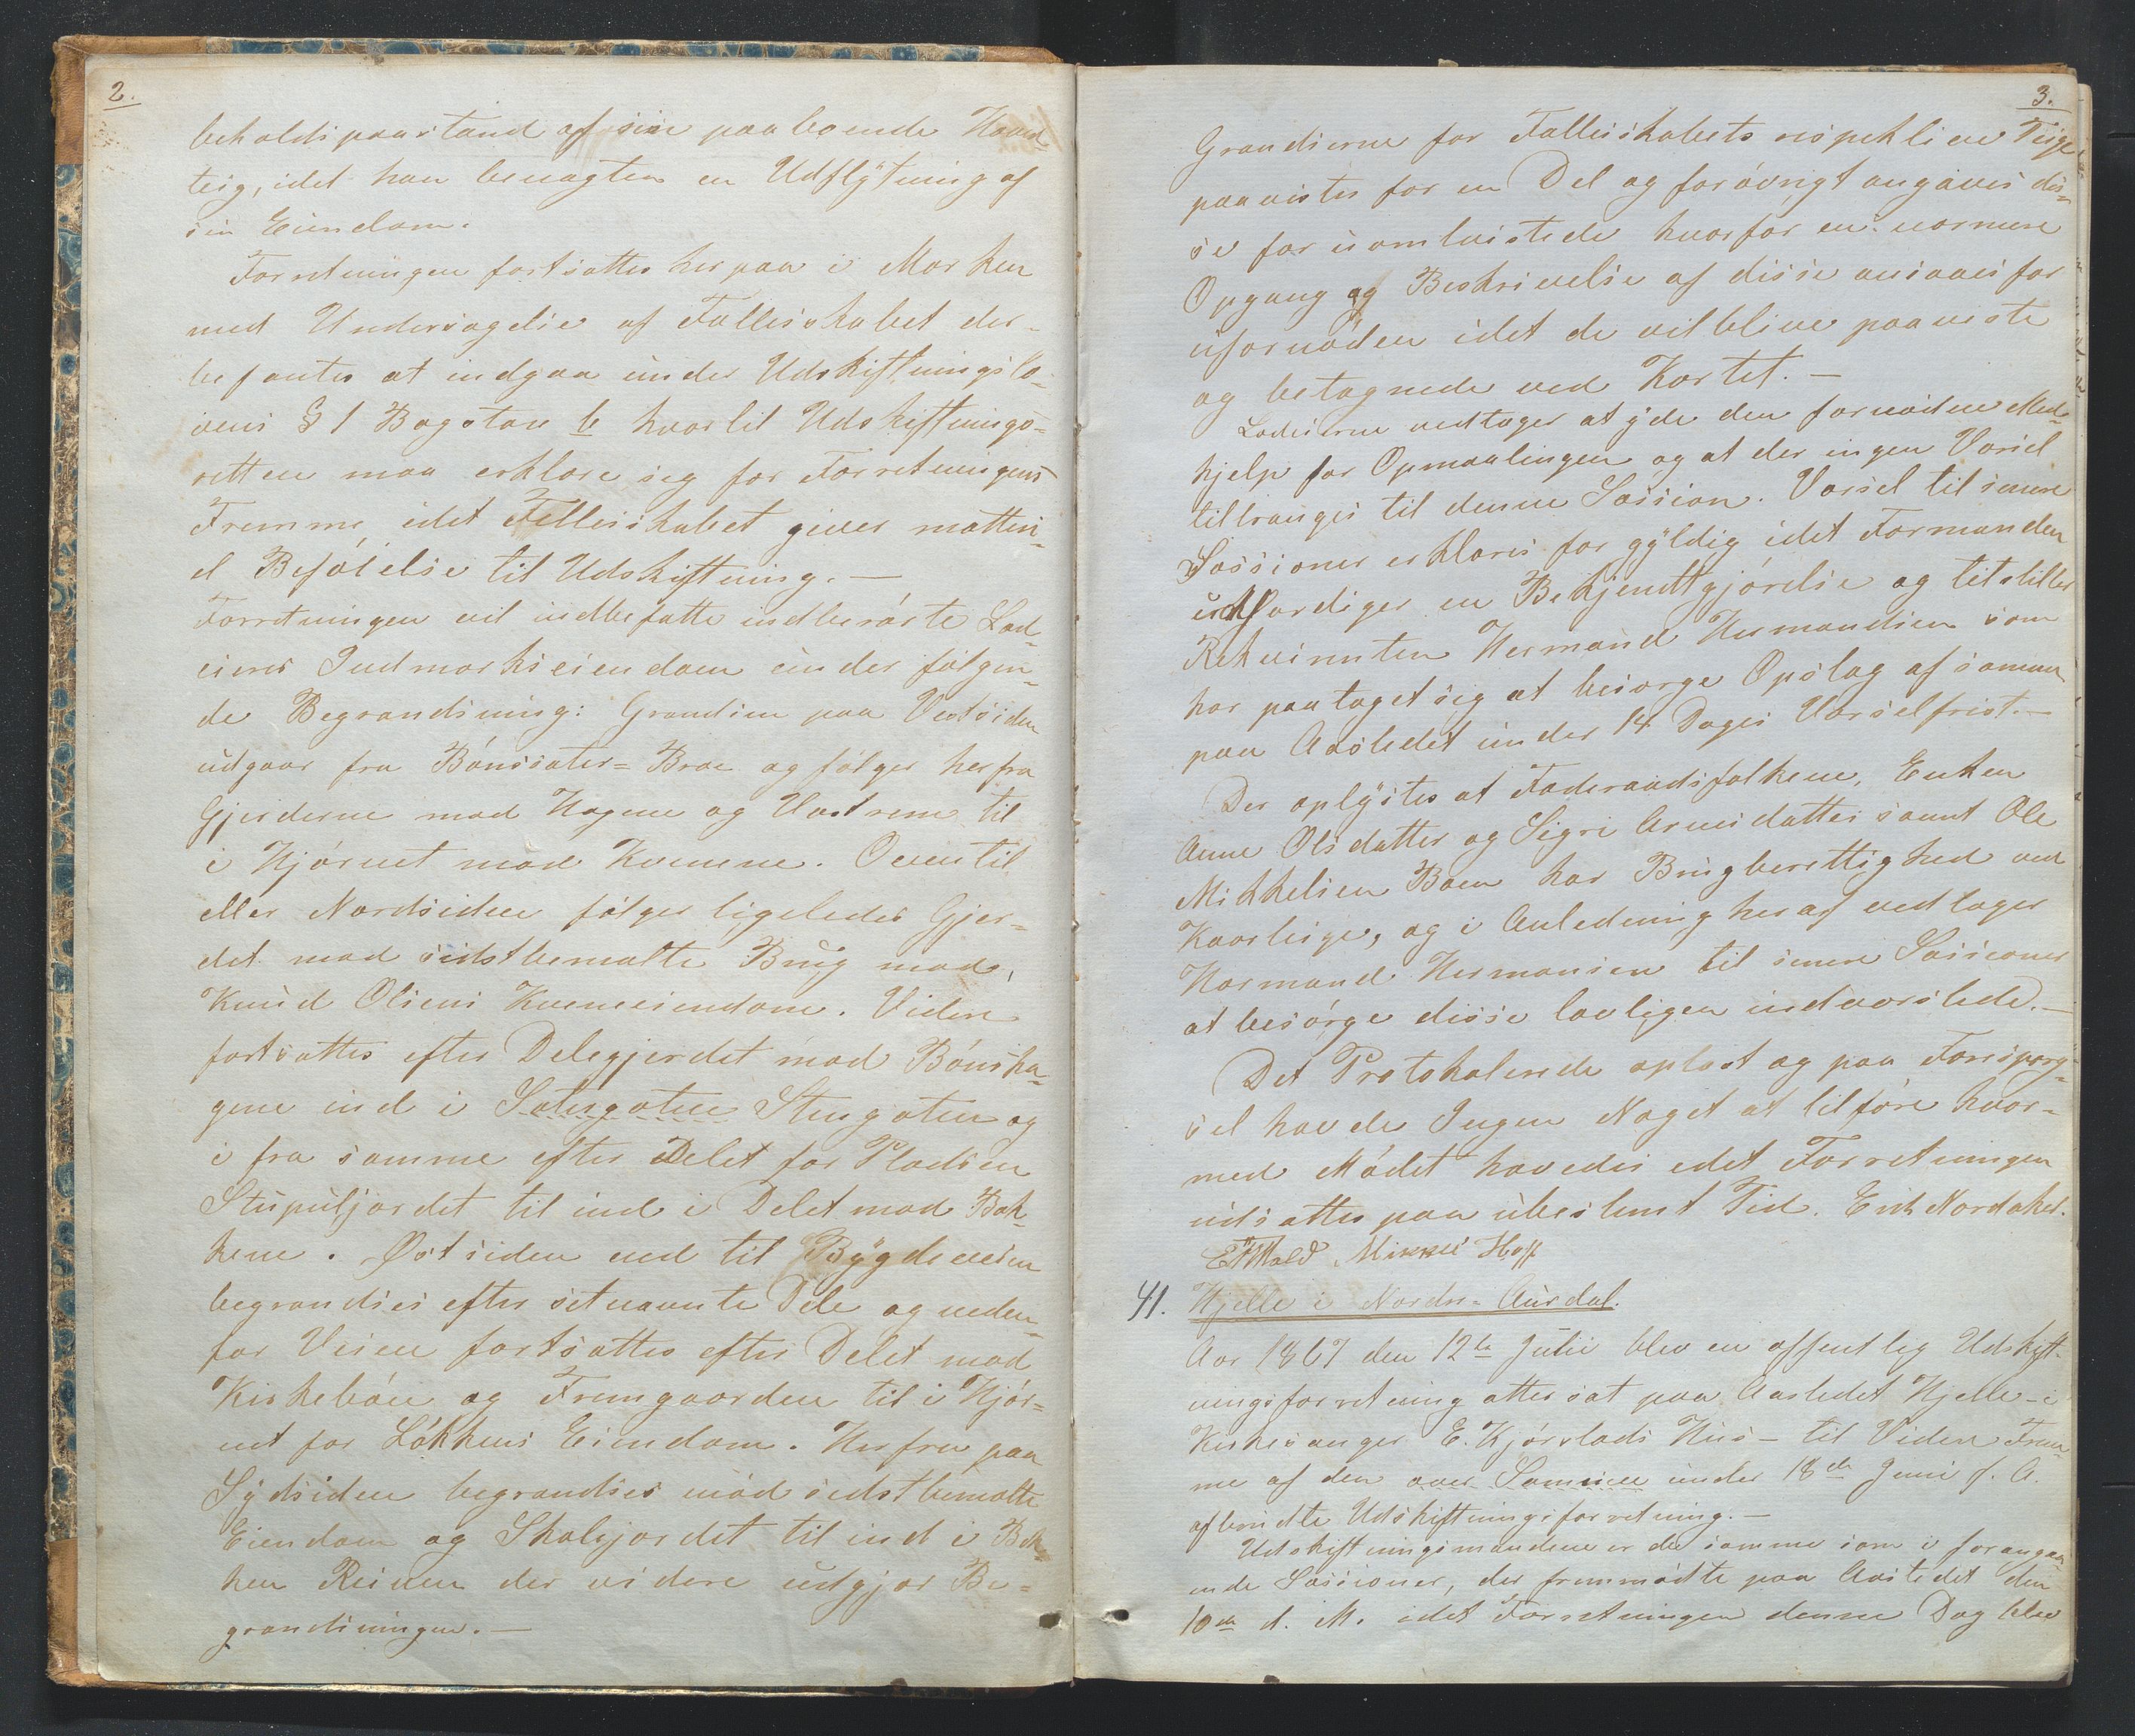 2.
beholdspaastand af sine paaboende Hoved-
teig, idet han benægter en Udflÿtning af
sin Eiendom.
Forretningen fortsattes herpaa i Marken
med Undersøgelse af Fællesskabet der
befantes at indgaa under Udskiftningslo-
vens § 1 Bogstav b hvortil Udskiftnings-
retten maa erklære sig for Forretningens
Fremme, idet Fællesskabet giver matteri-
el Beføielse til Udskiftning. —
Forretningen vil indbefatte indberørte Lod-
eieres Indmarkseiendom under følgen-
de Begrændsning: Grændsen paa Vestsiden
udgaar fra Bónssæter= Brae og følger herfra
Gjerderne mod Hagene og Vastrem til
i Hjórnet mod Kvenne. Oventil
eller Nordsiden følger ligeledes Gjer-
det mod sidstbemælte Brug mod
Knud Olsens Kvenneiendom. Videre
fortsættes efter Delegjerdet mod Bónsha-
gene ind i Sætergaten Stengaten og
i fra samme efter Delet for Pladsen
Stupuljordet til ind i Delet mod Bak-
kene. Østsiden ned til Bÿgdeveien
begrændses efter sitnævnte Dele og neden-
for Veien fortsættes efter Delet mod
Kirkebóen og Fremgaarden til i Hjór-
net for Lókkens Eiendom. Herfra paa
Sÿdsiden begrændses mod sidstbemælte
Eiendom og Skolejordet til ind i Bek-
ken Reinen der videre udgjør Be-
grændsningen. —
3.
Grændserne for Fællesskabets respektive Teige
paavistes for en Del og forøvrigt angaves dis-
se for uomtvistede hvorfor en nærmere
Opgang og Beskrivelse af disse ansaaes for
ufornøden idet de vil blive paaviste
og betegnede ved Kartet. —
Lodeierne vedtager at ÿde den fornødne Med-
hjelp for Opmaalingen og at der ingen Varsel
tiltrænges til denne Session. Varsel til senere
Sessioner erklæres for gÿldig idet Formanden
udfærdiger en Bekjendtgjórelse og tilstiller
Rekvirenten Hermand Hermandsen som
har paataget sig at besørge Opslag af samme
paa Aastedet under 14 Dages Varselfrist. —
Der oplÿstes at Føderaadsfolkene, Enken
Anne Olsdatter og Sigri Arnesdatter samt Ole
Mikkelsen Boen har Brugberettighed ved
Kaarteige, og i Anledning heraf vedtager
Hermand Hermansen til senere Sessioner
at besórge disse lovligen indvarslede. —
Det Protokolerede oplæst og paa Forespørg-
sel havde Ingen Noget at tilføre hvor-
med Mødet hævedes idet Forretningen
udsættes paa ubestemt Tid. Erik Nordaker.
E T Wold Mikkel Hoff
41. Hjelle i Nordre= Aurdal.
Aar 1867 den 12te Julii blev en offentlig Udskift-
ningsforretning attersat paa Aastedet Hjelle – i
Kirkesanger E. Kjórstads Hus – til Videre Frem-
me af den over Samme under 18de Juni f. A.
afbrudte Udskiftningsforretning. —
Udskiftningsmændene er de samme som i foregaa-
ende Sessioner, der fremmødte paa Aastedet den
10de d. M. idet Forretningen denne Dag blev